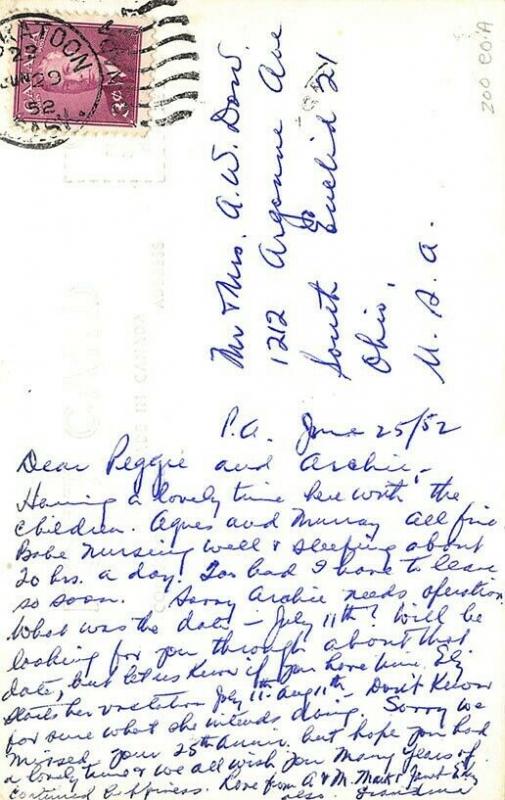 SASKATOON
22
JUN 29
52
SASK.
CANADA
Mr & Mrs. A. W. Dow.
1212 Argonne Ave
South Euclid 21
Ohio,
U. S. A.
ZOO CO:A
P.A. June 25/52
Dear Peggie and Archie,-
Having a lovely time here with the
children. Agnes and Murray all fine
Babe nursing well & sleeping about
20 hrs. a day! Too bad I have to leave
so soon. Sorry Archie needs operation
What was the date - July 11th? Will be
looking for you through about that
date, but let us know if you have time. Ely
starts her vacation July 11th-Aug 11th - Don't know
for sure what she intends doing. Sorry we
missed your 25th Anniv. but hope you had
a lovely time & we all wish you many years of
continued happiness. Love from A & M. Mark & Janet Ely
also. Grandma